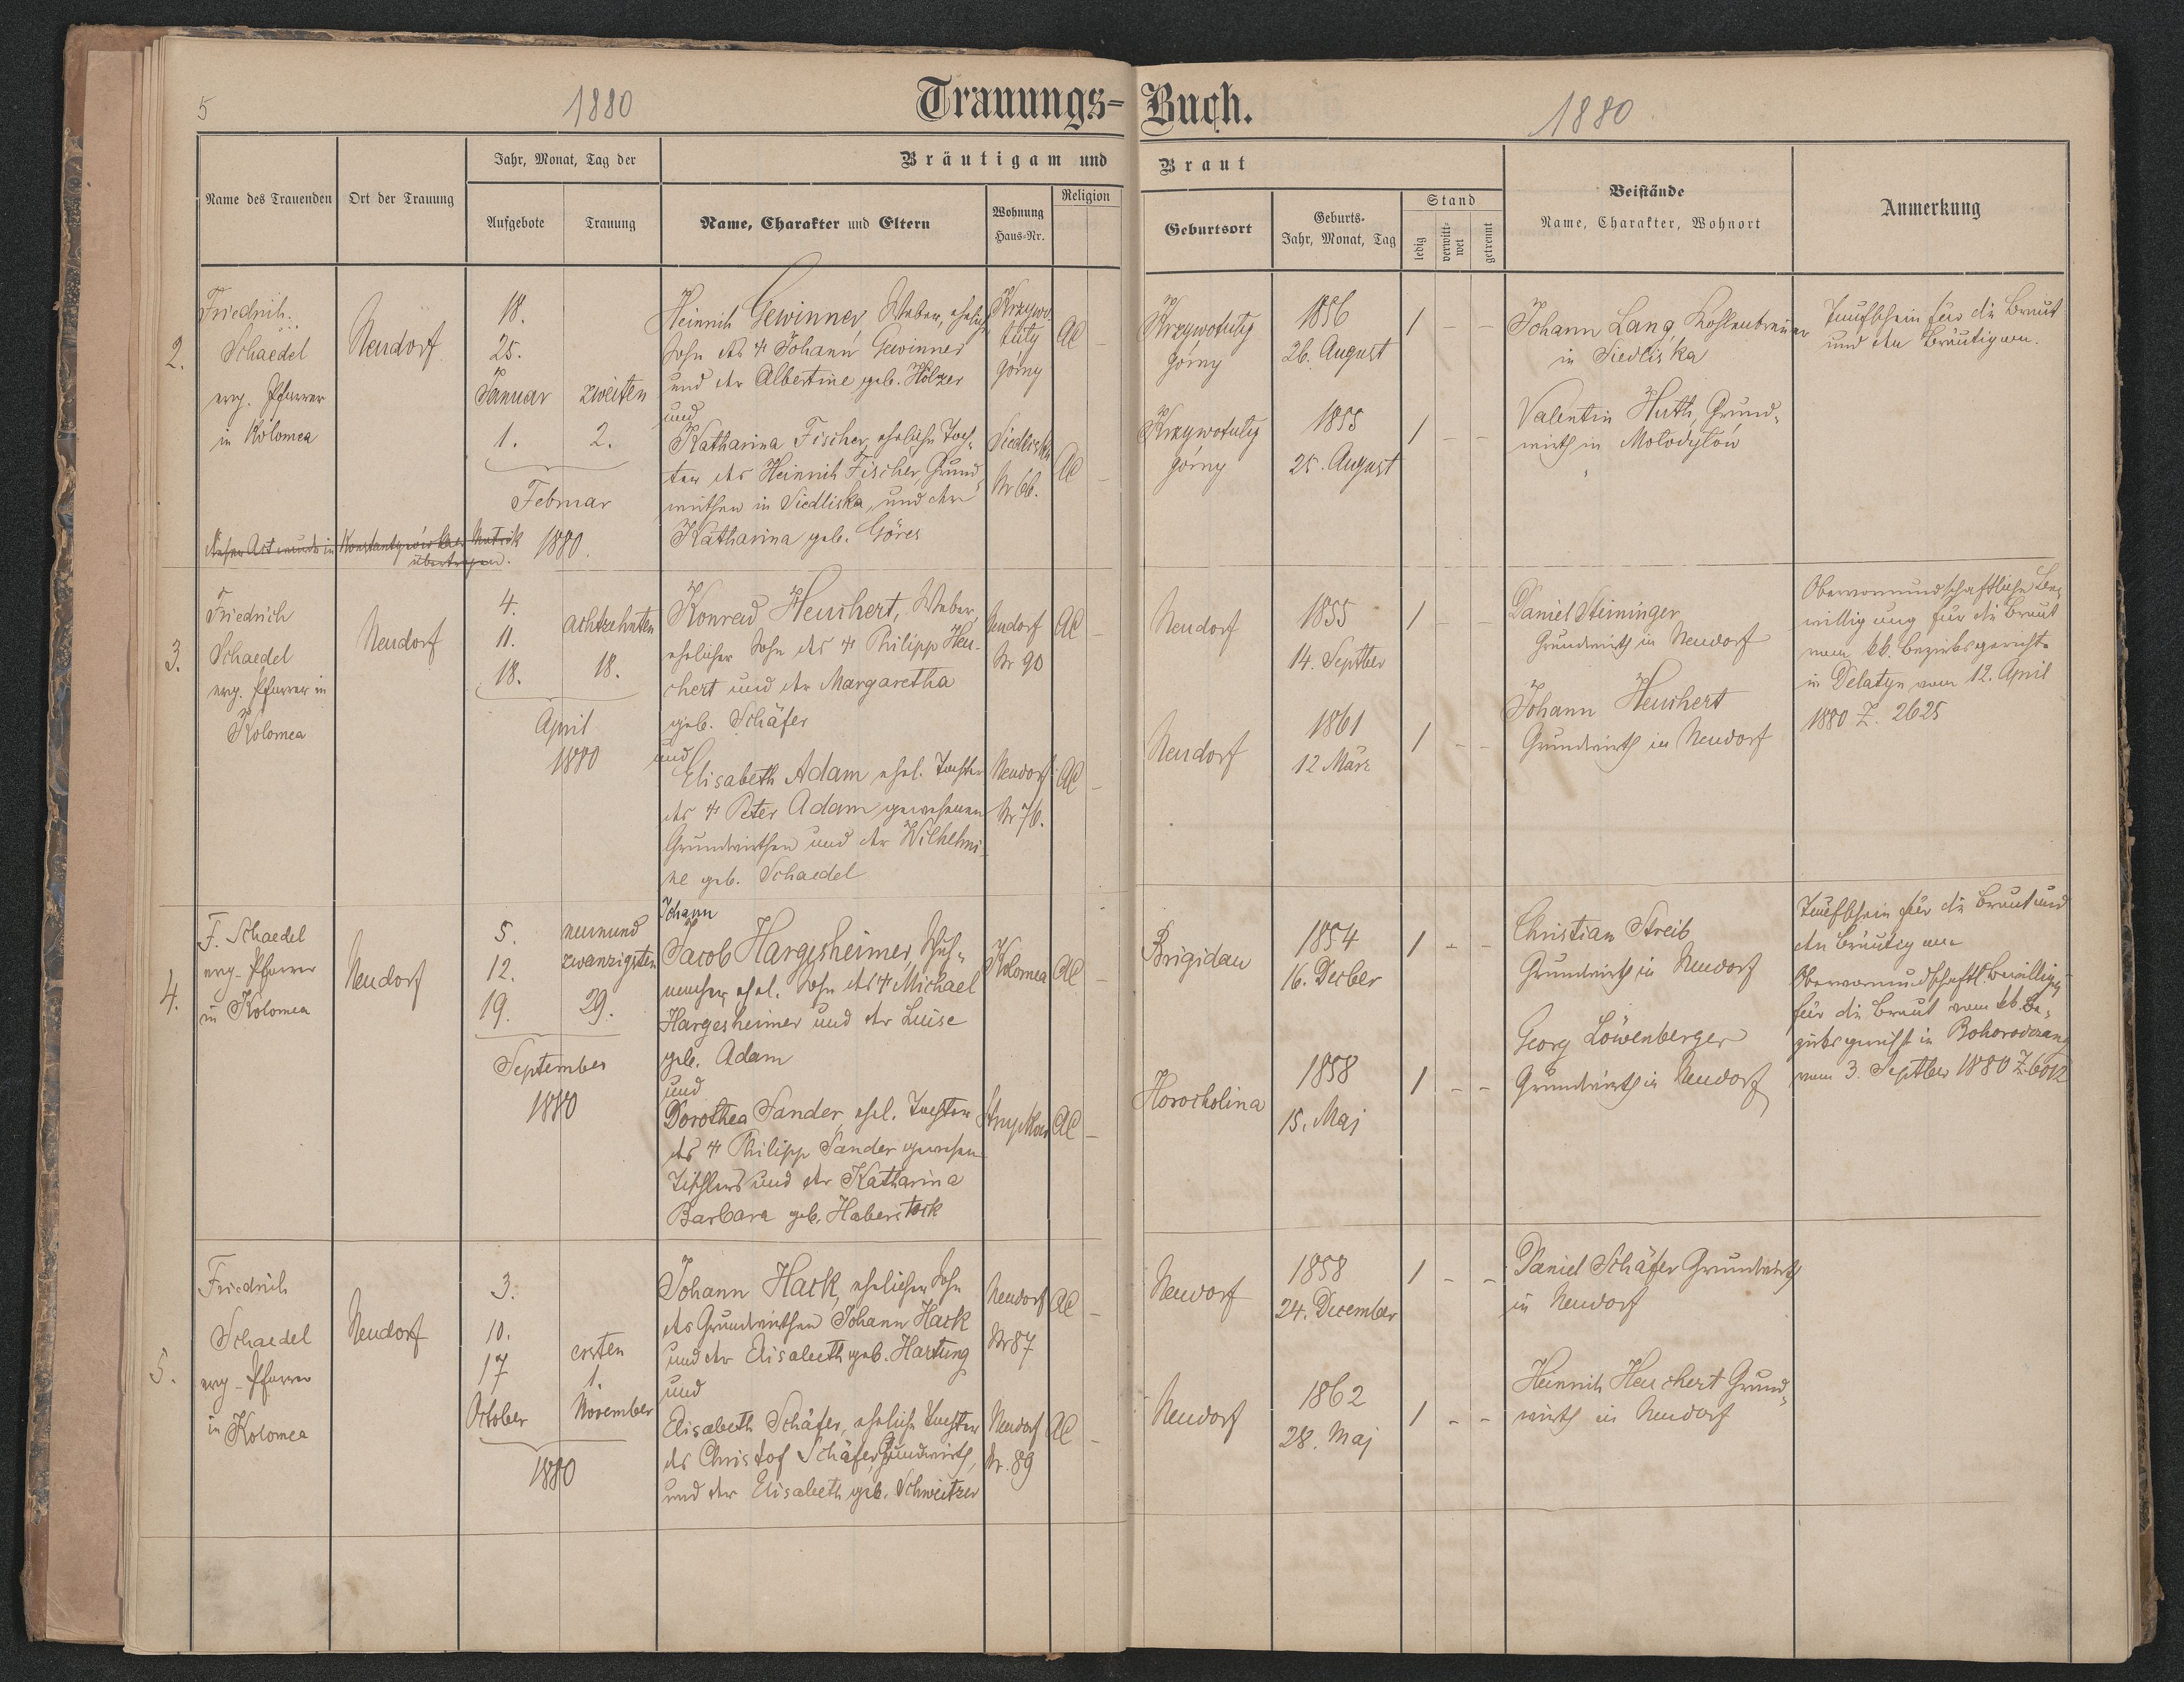 5
1880
Trauungs-Buch.
1880
Name des Trauenden
Ort der Trauung
Jahr, Monat, Tag der
Aufgebote
Trauung
Bräutigam und
Braut
Name, Charakter und Eltern
Wohnung
Haus-Nr.
Religion
Geburtsort
Geburts-
Jahr, Monat, Tag
Stand
ledig
verwitt-
wet
getrennt
Beistände
Name, Charakter, Wohnort
Anmerkung
2.
Friedrich
Schaedel
evg. Pfarrer
in Kolomea
Neudorf
18.
25.
Januar
1.
zweiten
2.
Februar
1880.
Heinrich Gewinner, Weber, ehelich
Sohn des † Johann Gewinner
und der Albertine geb. Hölzer
und
Katharina Fischer, eheliche Toch-
ter des Heinrich Fischer, Grund-
wirthen in Siedliska, und der
Katharina geb. Göres
Krzywo
tuly
górny
AC
Siedliska
Nr 66.
AC
Krzywotuly
górny
1856
26. August
1 - -
Krzywotuly
górny
1855
25. August
1 - -
Johann Lang, Kohlenbrenner
in Siedliska
Valentin Huth, Grund-
wirth in Molodylów
Taufschein für die Braut
und den Bräutigam.
dieser Act wurde in Konstantynówkaer Matrik
übertragen.
3.
Friedrich
Schaedel
evg. Pfarrer in
Kolomea
Neudorf
4.
11.
18.
achtzehnten
18.
April
1880
Konrad Heuchert, Weber,
ehelicher Sohn des † Philipp Heu-
chert und der Margaretha
geb. Schäfer
und
Elisabeth Adam ehel. Tochter
des † Peter Adam gewesenen
Grundwirthen und der Wilhelmi-
ne geb. Schaedel
Neudorf
Nr 90
AC -
Neudorf
Nr 76.
AC -
Neudorf
1855
14. Septber
1 - -
Neudorf
1861
12 März
1 - -
Daniel Steininger
Grundwirth in Neudorf
Johann Heuchert
Grundwirth in Neudorf
Obervormundschaftliche Be-
willigung für die Braut
vom kk. Bezirksgerichte
in Delatyn vom 12. April
1880 Z. 2625
4.
F. Schaedel
evg. Pfarrer
in Kolomea
Neudorf
5.
12.
19.
neunund
zwanzigsten
29.
September
1880
Johann
Jacob Hargesheimer, Schuh-
macher, ehel. Sohn des † Michael
Hargesheimer und der Luise
geb. Adam
und
Dorothea Sander, ehel. Tochter
des † Philipp Sander gewesen
Tischlers und der Katharina
Barbara geb. Haberstock
Kolomea
AC -
AC -
Brigidau
1854
16. Decber
1 - -
Horocholina
1858
15. Maj
1 - -
Christian Streib
Grundwirth in Neudorf
Georg Löwenberger
Grundwirth in Neudorf
Taufschein für die Braut und
den Bräutigam
Obervormundschaftl. Bewilligg
für die Braut vom kk. Be-
zirksgericht in Bohorodczany
vom 3. Septber 1880 Z. 6012
5.
Friedrich
Schaedel
evg. Pfarrer
in Kolomea
Neudorf
3.
10.
17
October
ersten
1.
November
1880
Johann Hack, ehelicher Sohn
des Grundwirthen Johann Hack
und der Elisabeth geb. Hartung
und
Elisabeth Schäfer, eheliche Tochter
des Christof Schäfer, Grundwirth,
und der Elisabeth geb. Schweitzer
Neudorf
Nr 87
AC -
Neudorf
Nr. 89
AC -
Neudorf
1858
24. December
1 - -
Neudorf
1862
28. Maj
1 - -
Daniel Schäfer Grundwirth
in Neudorf
Heinrich Heuchert Grund-
wirth in Neudorf